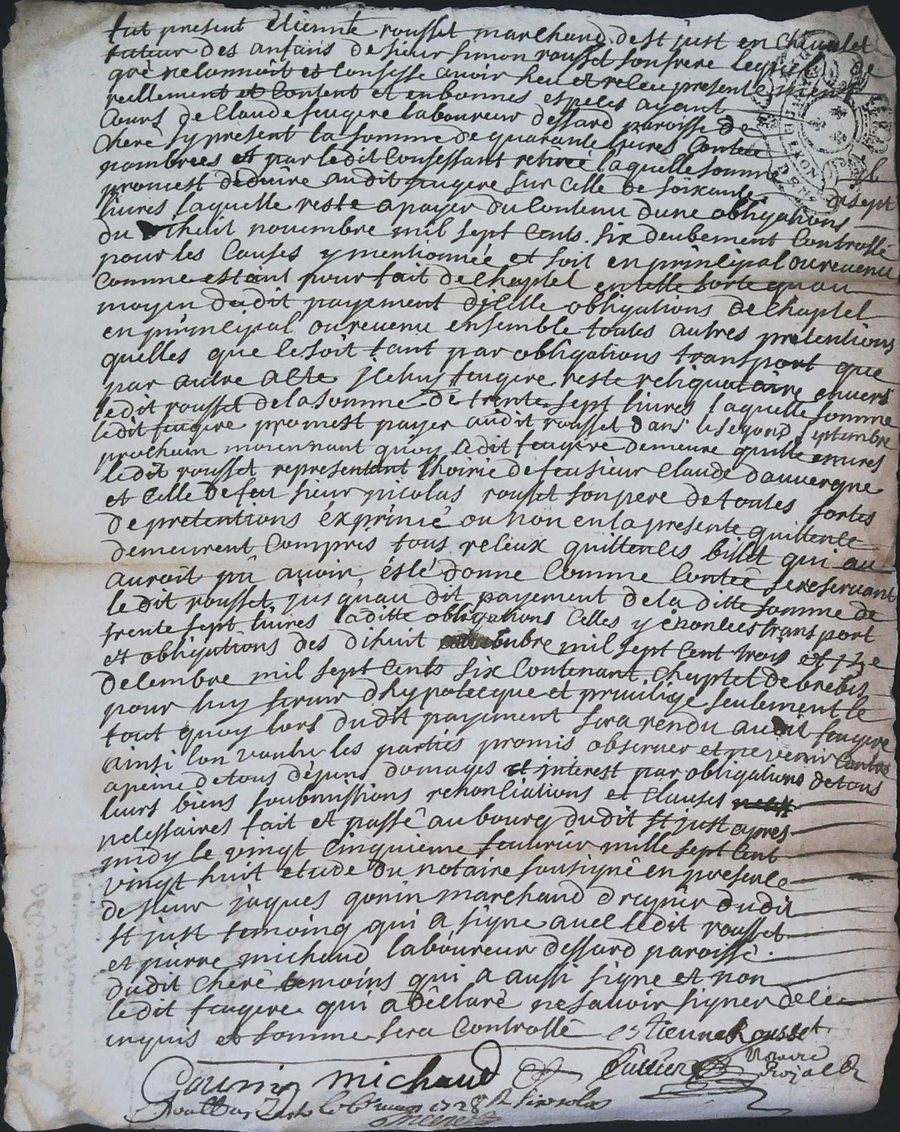 fut present Etienne rousset marchand de st just en chevalet
tuteur des anfans de sieur simon rousset son frere lequel de
gré reconnoit et confesse avoir heu et receu presentement
reellement et content et en bonnes especes ayant
cours de Claude feugere laboureur dessard paroisse de
cheré sy present la somme de quarante livres contée
nombrées et par ledit Confessant retiré laquelle somme il
promest déduire audit feugere sur celle de soixante disept
livres laquelle reste a payer du contenu dune obligations
du dihuit novembre mil sept cents six deubement Controllé
pour les Causes y mentionnée et soit en principal ou revenu
comme estant pour fait de cheptel en telle sorte quau
moyen dudit payement dicelle obligations de cheptel
en principal ou revenu ensemble toutes autres pretentions
quelles que ce soit tant par obligations transport que
par autre acte Iceluy feugere reste reliquataire envers
ledit rousset de la somme de trente sept livres laquelle somme
ledit feugere promest payer audit rousset dans le segond septembre
prochain moiennant quoy ledit feugere demeure quitte envers
ledit rousset representant lhoirie de feu sieur Claude dauvergne
et celle de feu sieur nicolas rousset son pere de toutes sortes
de pretentions éxprimé ou non en la presente quittence
demeurent Compris tous reseux quittences billet qui au
auroit pû avoir éstê donné comme contee se reservant
ledit rousset jusquau dit payement de la ditte somme de
trente sept livres laditte obligations celles y enoncees transport
et obligations des dihuit mil sept cent trois et
decembre mil sept cents six contenant cheptel de brebis
pour luy servir dhypotecque et privilige seulement le
tout quoy lors dudit payement sera rendu audit feugere
ainsi lon voulu les parties promis observer et ne venir Contre
a peine de tous dépans domages et interest par obligations de tous
leurs biens soubmissions renonciations et clauses
necessaires fait et passé au bourg dudit st just apres
midy le vingt cinquieme feuvrier mille sept cent
vingt huit etude du notaire soussigné en presence
de sieur jaques gonin marchand drapier dudit
st just temoing qui a signe avec ledit rousset
et pierre michaud laboureur dessard paroisse
dudit cheré temoins qui a aussi signe et non
ledit feugere qui a déclaré ne savoir signer de ce
enquis et somme sera Controllé estienne Rousset
michaud notaire
Royal
1728